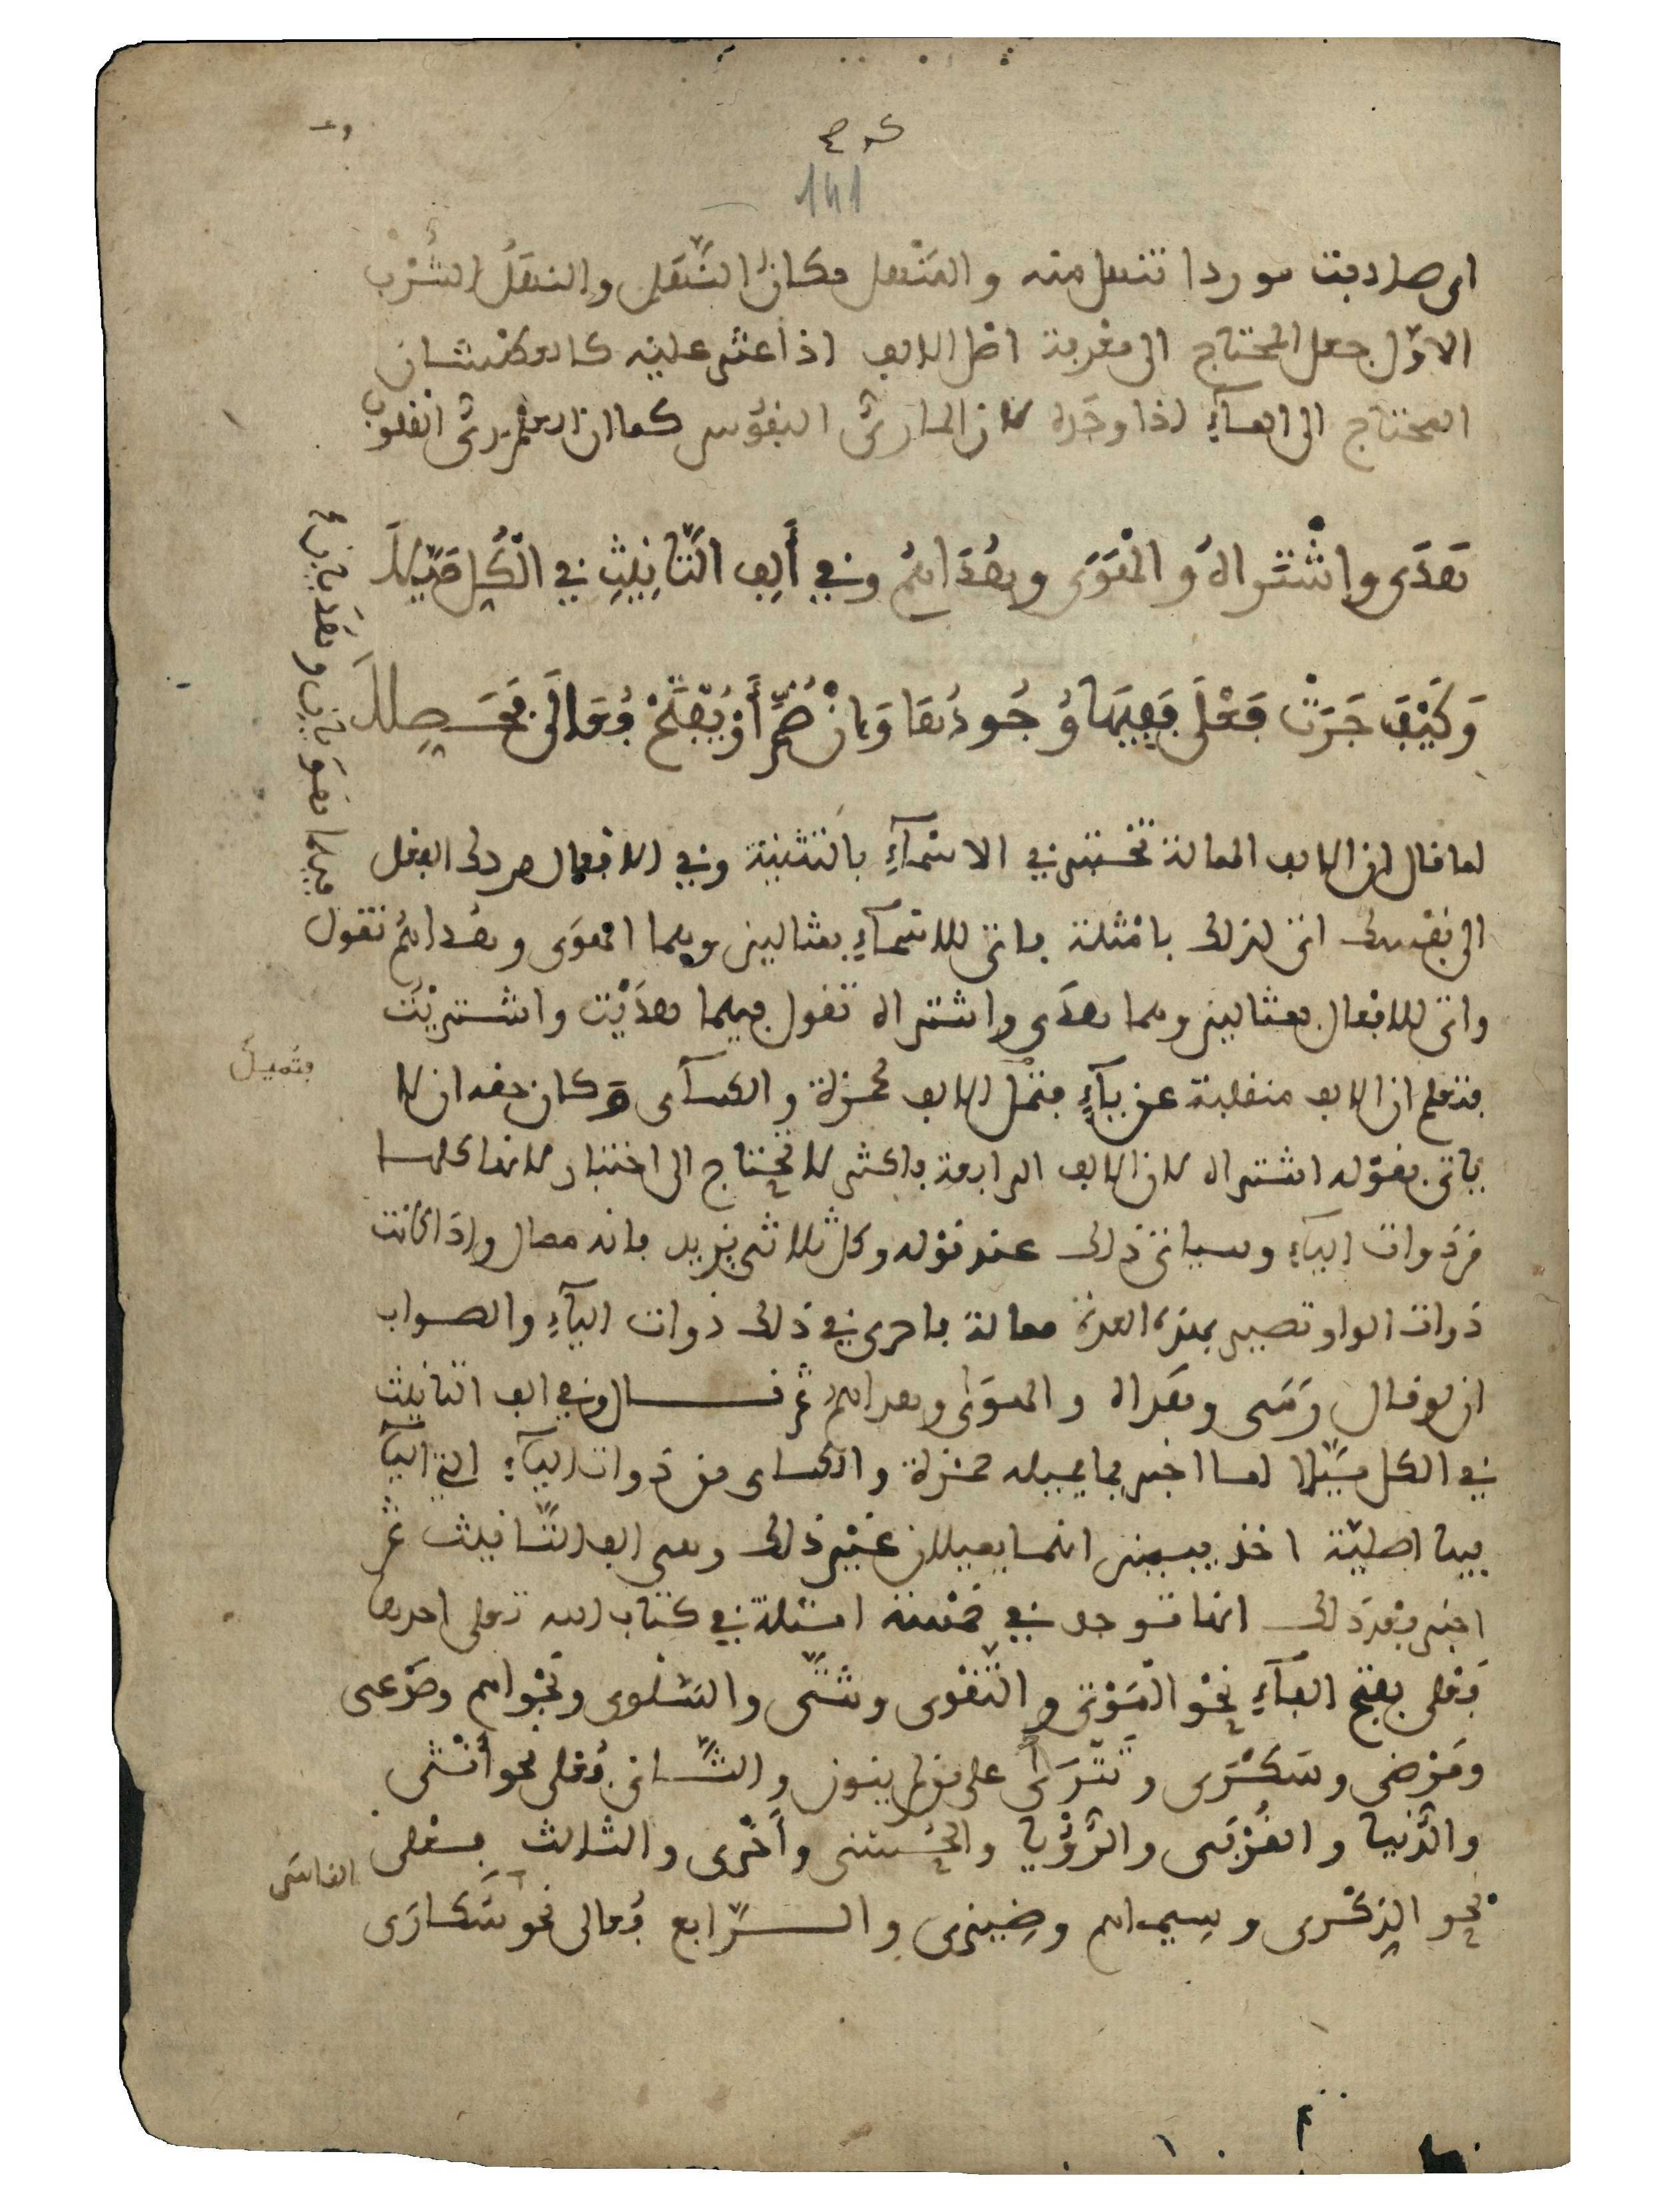 141
اى صادفت موردا تنهل منه والمنهل مكان النَّهَل والنهَلُ الشُّرْب
الاوّل جعل المحتاج الى معرفة اصل الالف اذا عثر عليه كالعطشان
المحتاج الى المآءِ اذا وجده لان المآ رىُّ النفوس كما ان العلم رىُّ القلوب
هَدَى واشْتَراهُ والْهَوَى وهُدَاهُمُ وفي أَلِفِ التَّانِيثِ في الْكُلِّ مَيَّلَا
وَكَيْفَ جَرَتْ فَعْلَى فَفِيهَا وُجُودُهَا وَإِنْ ضُمَّ أَوْ يُفْتَحْ فُعَالَى فَحَصِّلَا
لما قال ان الالف الممالة تختبر في الاسْمآءِ بالتثنية وفي الافعال بردك الفعل
الى نفسك اتى لذلك بامثلة فاتى للاسمآءِ بمثالين وهما الهوَى وهُداهُمُ تقول
فيهما هَوَيان وهُدَيان
واتى للافعال بمثالين وهما هدَى واشتراه تقول فيهما هدَيْت واشتريْت
فتعلم ان الالف منقلبة عن يآءٍ فتميل الالف لحمزة والكسآى وكان حقه ان لا
فتميل
ياتى بقوله اشتراه لان الالف الرابعة فاكثر لا تحتاج الى اختبار لانها كلها
من ذوات اليآءِ وسياتى ذلك عند قوله وكل ثلاثى يزيد فانه ممال واذا كانت
ذوات الواو تصير بهذه العدة ممالة فاحرى في ذلك ذوات اليآءِ والصواب
ان لو قال رَمَى وهَداه والهوَى وهداهم ثم قال وفي الف التانيث
في الكل ميَّلا لما اخبر بما يميله حمزة والكساى من ذوات اليآءِ التى اليآ
فيها اصليّة اخذ يبين انهما يميلان غيْر ذلك وهى الف التَّانيث ثم
اخبر بعد ذلك انها توجد في خمسة امثلة في كتاب الله تعلى احدها
فَعْلى بفتح الفآءِ نحْو المَوْتى والتَّقْوى وشتَّى والسَّلْوى ونجْواهم وصَرْعى
ومَرْضى وسَكْرَى وتَتْرَى على من لم ينون والثَّانى فُعْلى نحو أُنْثى
والدُّنيا والقُرْبَى والرُّؤْيا والحُسْنى وأُخْرى والثالث فِعْلى
نحو الذِّكْرى وسِيماهم وضِيزى والرَّابع فُعالى نحو سُكارَى